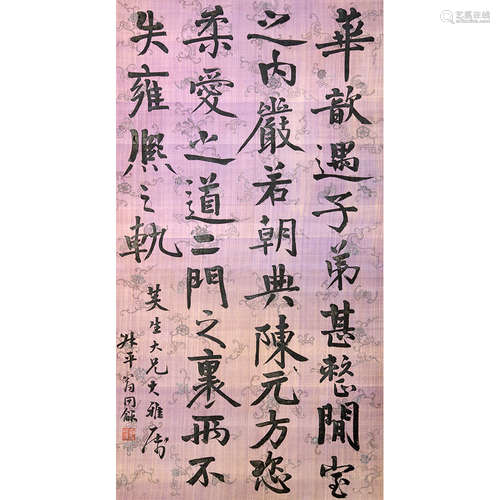 華歆遇子弟甚整閒室
之内嚴若朝典陳元方恣
柔愛之道二門之裏兩不
失雍熙之軌
芙生大兄大雅属
叔平翁同龢